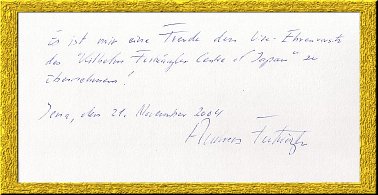 Es ist mir eine Freude den Vize-Ehrenvorsitz
des "Wilhelm Furtwängler Centre of Japan" zu
übernehmen!
Jena, den 21. November 2004
Andreas Furtwängler